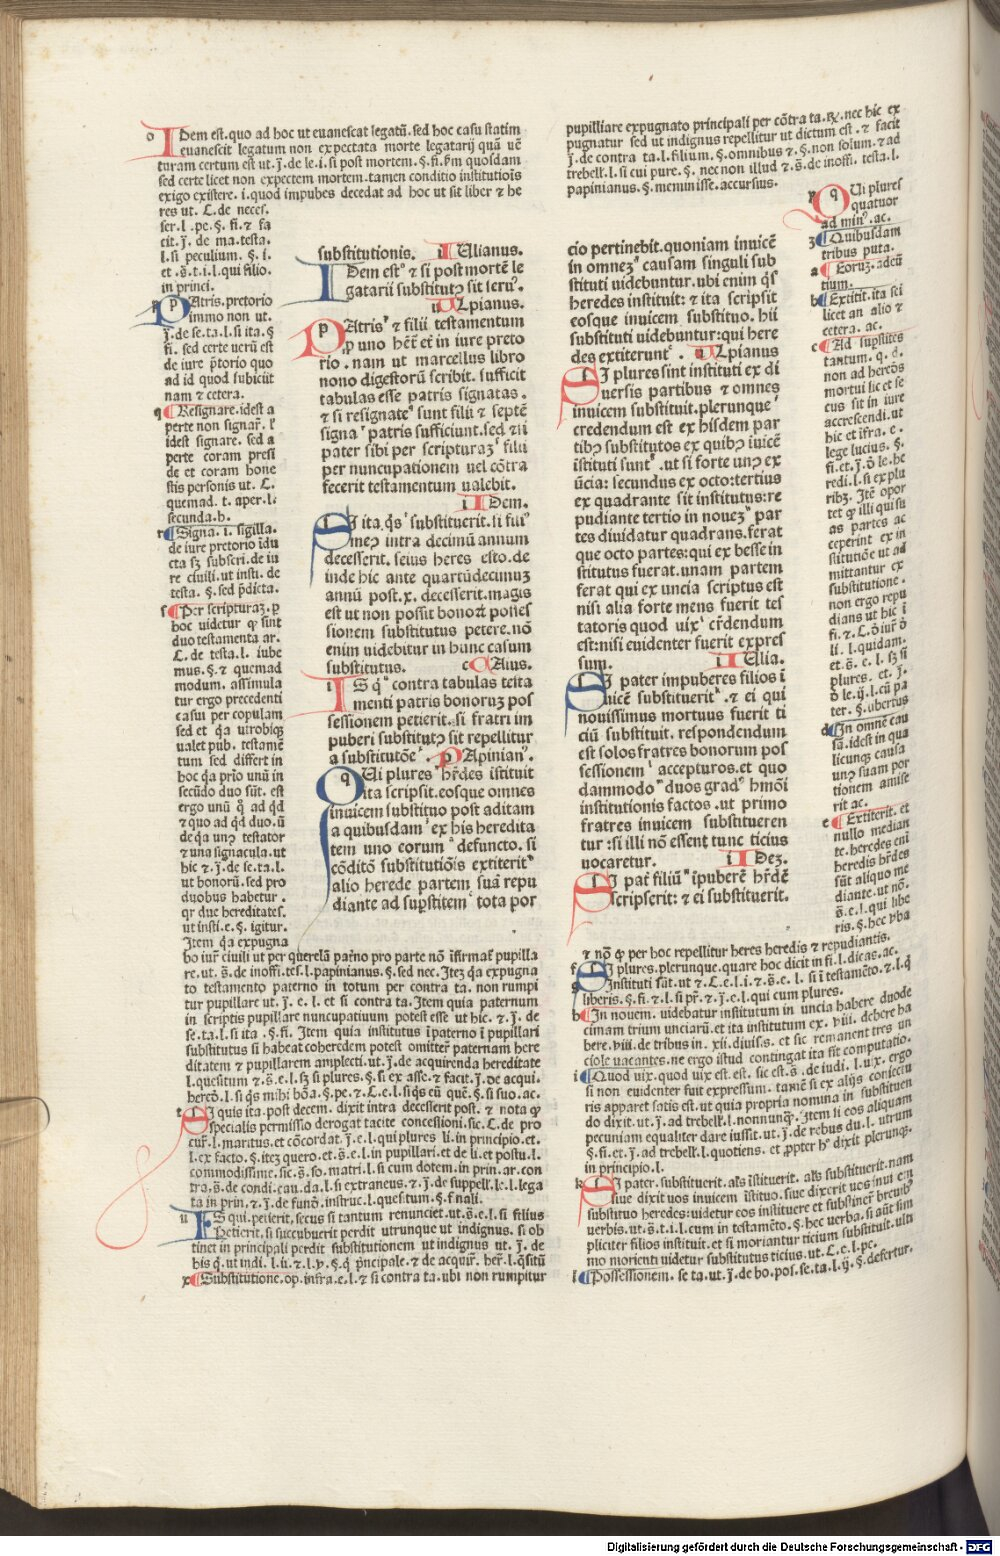 o Idem est.quo ad hoc ut euanescat legatū.sed hoc casu statim
euanescit legatum non expectata morte legatarij quā uē
turam certum est ut.j̄.de le.i.si post mortem.§.fi.sm quosdam
sed certe licet non expectem mortem.tamen conditio institutiōis
exigo existere.i.quod impubes decedat ad hoc ut sit liber ⁊ he
res ut.C.de neces.
ser.l.pe.§.fi.⁊ fa
cit.j̄.de ma.testa.
l.si peculium.§.i.
et.s̄.t.i.l.qui filio.
in princi.
p Patris.pretorio
immo non ut.
j̄.de se.ta.l.si ita.§
fi. sed certe uerū est
de iure p̄torio quo
ad id quod subicitt
nam ⁊ cetera.
q Resignare.idest a
perte non signar̄.l'
idest signare. sed a
perte coram presi
de et coram hone
stis personis ut. C.
quemad. t. aper.l.
secunda.h.
r Signa. i. sigilla.
de iure pretorio īdu
cta sꝫ subscri.de iu
re ciuili.ut insti.de
testa.§.sed p̄dicta.
s Per scripturaꝫ.p
hoc uidetur ꝙ sint
duo testamenta ar.
C.de testa.l. iube
mus.§.⁊ quemad
modum. assimula
tur ergo precedenti
casui per copulam
sed et q̄a utrobiqꝫ
ualet pub. testamē
tum sed differt in
hoc q̄a prīo unū in
secūdo duo sūt. est
ergo unū q̊ ad q̄d
⁊ quo ad q̄d duo.ū
de q̄a unꝰ testator
⁊ una signacula.ut
hic ⁊ j̄.de se.ta.l.
ut honorū.sed pro
duobus habetur .
qr due hereditates.
ut insti.e.§. igitur.
Item q̄a expugna
bo iur̄ ciuili ut per querelā pat̄no pro parte nō īfirmat̄ pupilla
re.ut.s̄.de inoffi.tes.l.papinianus.§.sed nec.Iteꝫ q̄a expugna
to testamento paterno in totum per contra ta. non rumpi
tur pupillare ut.j̄. e. l. et si contra ta.Item quia paternum
in scriptis pupillare nuncupatiuum potest esse ut hic.⁊.j̄. de
se.ta.l.si ita .§.fi. Item quia institutus ī paterno ī pupillari
substitutus si habeat coheredem potest omitter̄ paternam here
ditatem ⁊ pupillarem amplecti.ut.j̄.de acquirenda hereditate
l.quesitum ⁊.s̄.e.l.sꝫ si plures.§.si ex asse.⁊ facit.j̄.de acqui.
herēd.l.si q̄s mihi bōa.§.pe.⁊.C.e.l.si q̄s eū quē.§.si suo.ac.
t Si quis ita.post decem. dixit intra decesserit post. ⁊ nota ꝙ
specialis permissio derogat tacite concessioni.sic.C.de pro
cur̄.l.maritus.et cōcordat.j̄.e.l.qui plures li.in principio.et.
l.ex facto.§.iteꝫ quero.et.s̄.e.l.in pupillari.et de li.et postu.l.
commodissime.sic.s̄.so.matri.l.si cum dotem.in prin.ar.con
tra.s̄.de condi.cau.da.l.si extraneus.⁊.j̄.de suppell.le.l.lega
ta in prin.⁊.j̄.de funō.instruc.l.quesitum.§.finali.
u Is qui.petierit.secus si tantum renunciet.ut.s̄.e.l.si filius
Petierit.si succubuerit perdit utrunque ut indignus.si ob
tinet in principali perdit substitutionem ut indignus ut.j̄.de
his q̄.ut indi.l.ii.⁊.l.p.§.q̄ p̄ncipale.⁊ de acquir̄.her̄.l.q̄sitū
x Substitutione.op.infra.e.l.⁊ si contra ta.ubi non rumpitur
substitutionis. iulianus.
Idem estº ⁊ si post mortē le
gatarii substitutꝰ sit seruꝰ.
ulpianus.
Patrisᵖ ⁊ filii testamentum
ꝓ uno hēt̄ et in iure preto
rio . nam ut marcellus libro
nono digestorū scribit. sufficit
tabulas esse patris signatas.
⁊ si resignateq sunt filii ⁊ septē
signaʳ patris sufficiunt.sed ⁊ si
pater sibi per scripturaꝫˢ filii
per nuncupationem uel cōtra
fecerit testamentum ualebit.
iDem.
Si ita q̄sᵗ substituerit.si filiꝰ
meꝰ intra decimū annum
decesserit. seius heres esto.de
inde hic ante quartūdecimuꝫ
annū post.x. decesserit.magis
est ut non possit bonoꝝ posses
sionem substitutus petere.nō
enim uidebitur in hunc casum
substitutus. cAius.
Is q̄ᵘ contra tabulas testa
menti patris bonoruꝫ pos
sessionem petierit.si fratri im
puberi substitutꝰ sit repellitur
a substitutōeˣ. pApinianꝰ.
Qui pluresʸ hr̄des īstituit
ita scripsit.eosque omnes
inuicem substituo post aditam
a quibusdamᶻ ex his heredita
tem uno eorumᵃ defuncto. si
cōditō substitutiōis extiteritᵇ
alio herede partem suā repu
diante ad sup̄stitemᶜ tota por
pupilliare expugnato principali per cōtra ta.℞.nec hic ex
pugnatur sed ut indignus repellitur ut dictum est . ⁊ facit
j̄.de contra ta.l.filium.§.omnibus ⁊ §.non solum.⁊ ad
trebell.l.si cui pure.§. nec non illud ⁊.s̄.de inoffi. testa.l.
papinianus.§.meminisse.accursius.
cio pertinebit.quoniam inuicē
in omneꝫᵈ causam singuli sub
stituti uidebuntur.ubi enim q̄s
heredes instituit: ⁊ ita scripsit
eosque inuicem substituo. hii
substituti uidebuntur:qui here
des extiteruntᵉ. ulpianus
Si plures sint instituti ex di
uersis partibus ⁊ omnes
inuicem substituit.plerunqueᶠ
credendum est ex hisdem par
tibꝰ substitutos ex quibꝰ iuicē
īstituti suntᵍ.ut si forte unꝰ ex
ūcia: secundus ex octo:tertius
ex quadrante sit institutus:re
pudiante tertio in noueꝫʰ par
tes diuidatur quadrans.ferat
que octo partes:qui ex besse in
stitutus fuerat.unam partem
ferat qui ex uncia scriptus est
nisi alia forte mens fuerit tes
tatoris quod uixⁱ cr̄dendum
est:nisi euidenter fuerit expres
sum. iUlia.
Si pater impuberes filios ī
uicē substitueritᵏ.⁊ ei qui
nouissimus mortuus fuerit ti
ciū substituit. respondendum
est solos fratres bonorum pos
sessionemˡ accepturos.et quo
dammodoᵐ duos gradꝰ hmōi
institutionis factos .ut primo
fratres inuicem substitueren
tur:si illi nō essent tunc ticius
uocaretur. iDeꝫ.
Si pat̄ filiūⁿ īpuberē hr̄dē
scripserit: ⁊ ei substituerit.
y Qui plures
quatuor
ad minꝰ.ac.
z Quibusdam
tribus puta.
a Eoruꝫ.adeū
tium.
b Extitit.ita sci
licet an alio ⁊
cetera. ac.
c Ad sup̄stites
tantum. q. d.
non ad heredes
mortui sic et se
cus sit in iure
accrescendi.ut
hic et īfra. e.
lege lucius. §.
fi.et.j̄.ō le.he
redi.l.si ex plu
ribꝫ. Itē opor
tet ꝙ illi qui su
as partes ac
ceperint ex in
stitutiōe ut ad
mittantur ex
substitutione.
non ergo repu
dians ut hic ī
fi.⁊.C.ō iur̄ ō
li. l.quidam.
et.s̄. e. l. sꝫ si
plures. et. j̄.
ō le.ij.l.cū pa
ter. §.ubertus
d In omnē cau
sā.idest in qua
licunqꝫ causa
unꝰ suam por
tionem amise
rit ac.
e Extiterit. et
nullo median
te.heredes eni
heredis hr̄des
sūt aliquo me
diante.ut nō.
s̄.e.l.qui libe
ris.§.hec v̄ba
⁊ nō ꝙ per hoc repellitur heres heredis ⁊ repudiantis.
f Si plures.plerunque.quare hoc dicit in fi.l.dic as.ac.
g Instituti sūt.ut ⁊.C.e.l.i.⁊.s̄.e. l. si ī testamēto.⁊.l.q̄
liberis.§.fi.⁊.l.si pr̄.⁊.j̄.e.l.qui cum plures.
h In nouem. uidebatur institutum in uncia habere duode
cimam trium unciarū.et ita institutum ex. viii. debere ha
bere.viii.de tribus in. xii.diuis.s. et sic remanent tres un
ciole uacantes.ne ergo istud contingat ita fit computatio.
i Quod uix.quod uix est.est. sic est.s̄ .de iudi. l.uix. ergo
si non euidenter fuit expressum. tamē si ex alijs coniectu
ris apparet satis est.ut quia propria nomina in substituen
do dixit.ut.j̄.ad trebell.l.nonnunqꝫ.Item si eos aliquam
pecuniam equaliter dare iussit.ut.j̄.de rebus du.l. utrum
§.fi.et.j̄.ad trebell.l.quotiens.et ꝓpter hº dixit plerunqꝫ.
in principio.l.
k Si pater.substituerit.als īstituerit.als substituerit.nam
siue dixit uos inuicem īstituo.siue dixerit uos inui cem
substituo heredes:uidetur eos instituere et substiner̄ breuibꝰ
uerbis.ut.s̄.t.i.l.cum in testamēto.§.hec uerba.si aūt sim
pliciter filios instituit.et si moriantur ticium substituit.ulti
mo morienti uidetur substitutus ticius.ut.C.e.l.pe.
l Possessionem.se ta.ut.j̄.de bo.pos.se.ta.l.ij.§.si defertur.
Digitalisierung gefördert durch die Deutsche Forschungsgemeinschaft - DFG